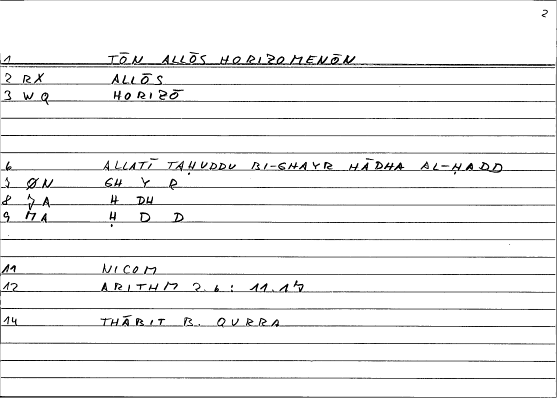 2
1 TŌN ALLŌS HORIZOMENŌN
2 RX ALLŌS
3 WQ HORIZŌ
6 ALLATĪ TAḤUDDU BI-GHAYR HĀDHA AL-ḤADD
ØN GH Y R
8 A H DH
9 A Ḥ D D
11 NICOM
12 ARITHM 2.6: 11.17
14 THĀBIT B. QURRA